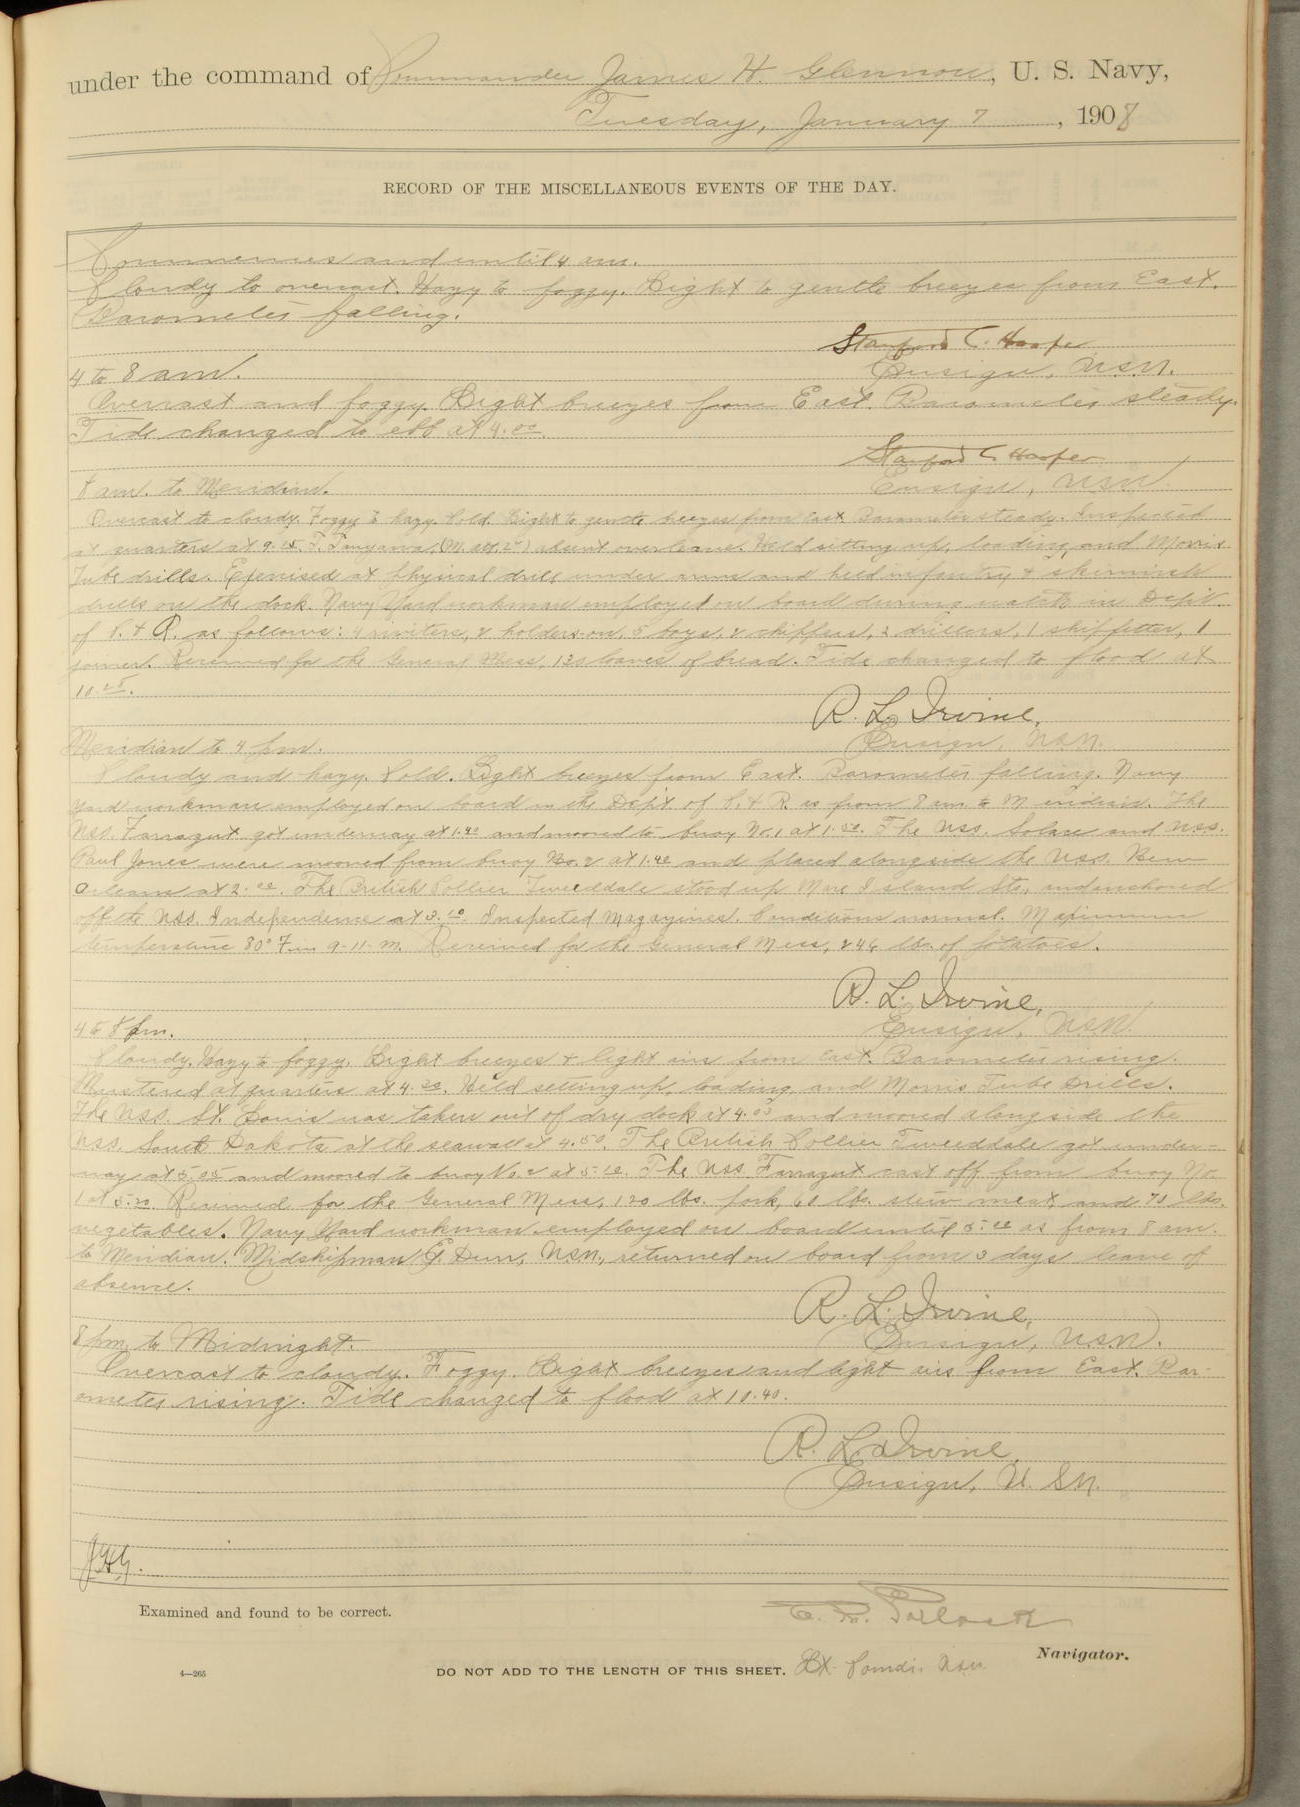 under the command of Commander James H. Glennon, U. S. Navy,
Tuesday, January 7, 1908
RECORD OF THE MISCELLANEOUS EVENTS OF THE DAY.
Commences and until 4 am.
Cloudy to overcast. Hazy to foggy. Light to gentle breezes from East.
Barometer falling.
Stanford C. Hooper
Ensign, USN.
4 to 8 am.
Overcast and foggy. Light breezes from East. Barometer steady.
Tide changed to ebb at 4.00.
Stanford C. Hooper
Ensign, USN.
8 am. to Meridian.
Overcast to cloudy. Foggy to hazy. Cold. Light to gentle breezes from East. Barometer steady. Inspected
at quarters at 9.15. absent over leave. Held setting up, loading, and Morris
Tube drills. Exercised at Physical drill under arms and held infantry & skirmish
drills on the dock. Navy Yard workman employed on board during watch in Dep't
of C. & R. as follows: 4 riviters, 2 holders-on, 5 boys, 2 chippers, 2 drillers, 1 shipfitter, 1
joiner. Received for the General Mess, 120 loaves of bread. Tide changed to flood at
10.25.
R. L. Irvine,
Ensign, USN.
Meridian to 4 pm.
Cloudy and hazy. Cold. Light breezes from East. Barometer falling. Navy
Yard workman employed on board in the Dep't of C. & R. as from 8 am. to Meridian. The
USS. Farragut got underway at 1.40 and moored to buoy No. 1 at 1.50. The USS. Solace and USS.
Paul Jones were moored from buoy No. 2 at 1.40 and placed alongside the USS. New
Orleans at 2.00. The British Collier Tweeddale stood up Mare Island Sts. and anchored
off the USS. Independence at 3.10. Inspected Magazines. Conditions normal. Maximum
temperature 80° F in 9-11-M. Received for the General Mess, 246 lbs. of potatoes.
R. L. Irvine,
Ensign, USN.
4 to 8 pm.
Cloudy. Hazy to foggy. Light breezes & light airs from East. Barometer rising.
Mustered at quarters at 4.20. Held setting up, loading, and Morris Tube Drills.
The USS. St. Louis was taken out of dry dock at 4.05 and moored alongside the
USS. South Dakota at the seawall at 4.50. The British Collier Tweeddale got under-
way at 5.05 and moored to buoy No. 2 at 5.10. The USS. Farragut cast off from buoy No.
1 at 5.20. Received for the General Mess, 120 lbs. pork, 60 lbs. stew meat, and 70 lbs.
vegetables. Navy Yard workman employed on board until 5.00 as from 8 am.
to Meridian. Midshipman E. Durr, USN., returned on board from 3 days leave of
absence.
R. L. Irvine,
Ensign, USN.
8 pm. to Midnight.
Overcast to cloudy. Foggy. Light breezes and light airs from East. Bar-
ometer rising. Tide changed to flood at 10.40.
R. L. Irvine,
Ensign, U.SN.
JHG.
Examined and found to be correct.
E. H. Pollock
4—265
DO NOT ADD TO THE LENGTH OF THIS SHEET.
Lt. Comdr. USN
Navigator.